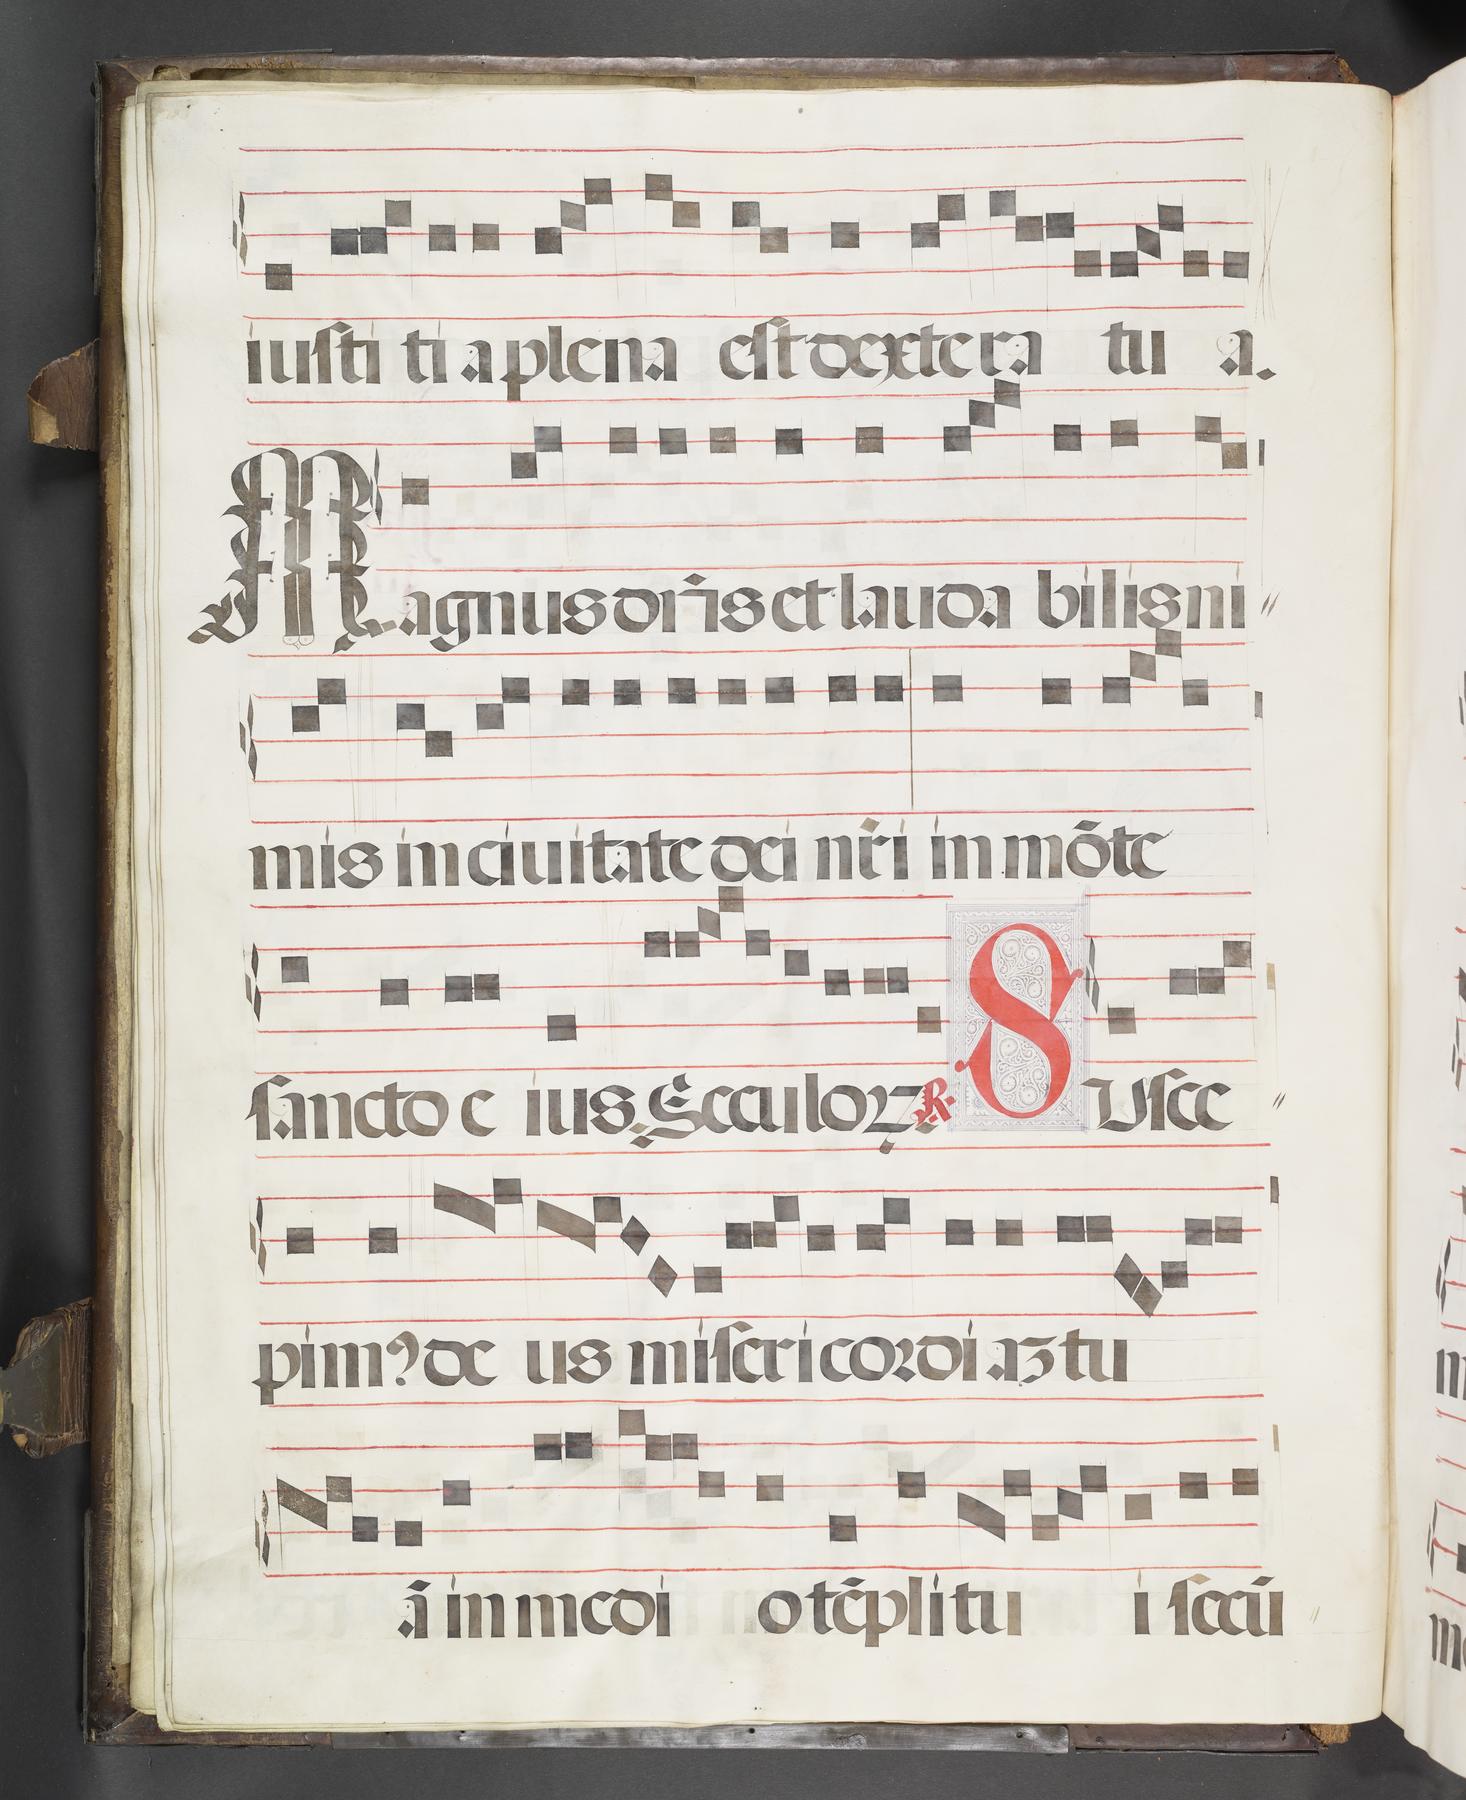 iusti ti a plena est dextera tu a.
Magnus dn̄s et lauda bilis ni
mis in ciuitate dei nr̄i in mōte
sancto e ius. Seculoꝝ R. Susce
pim⁹ de us misericordiaʒ tu
ā in medi o tēpli tu i secū